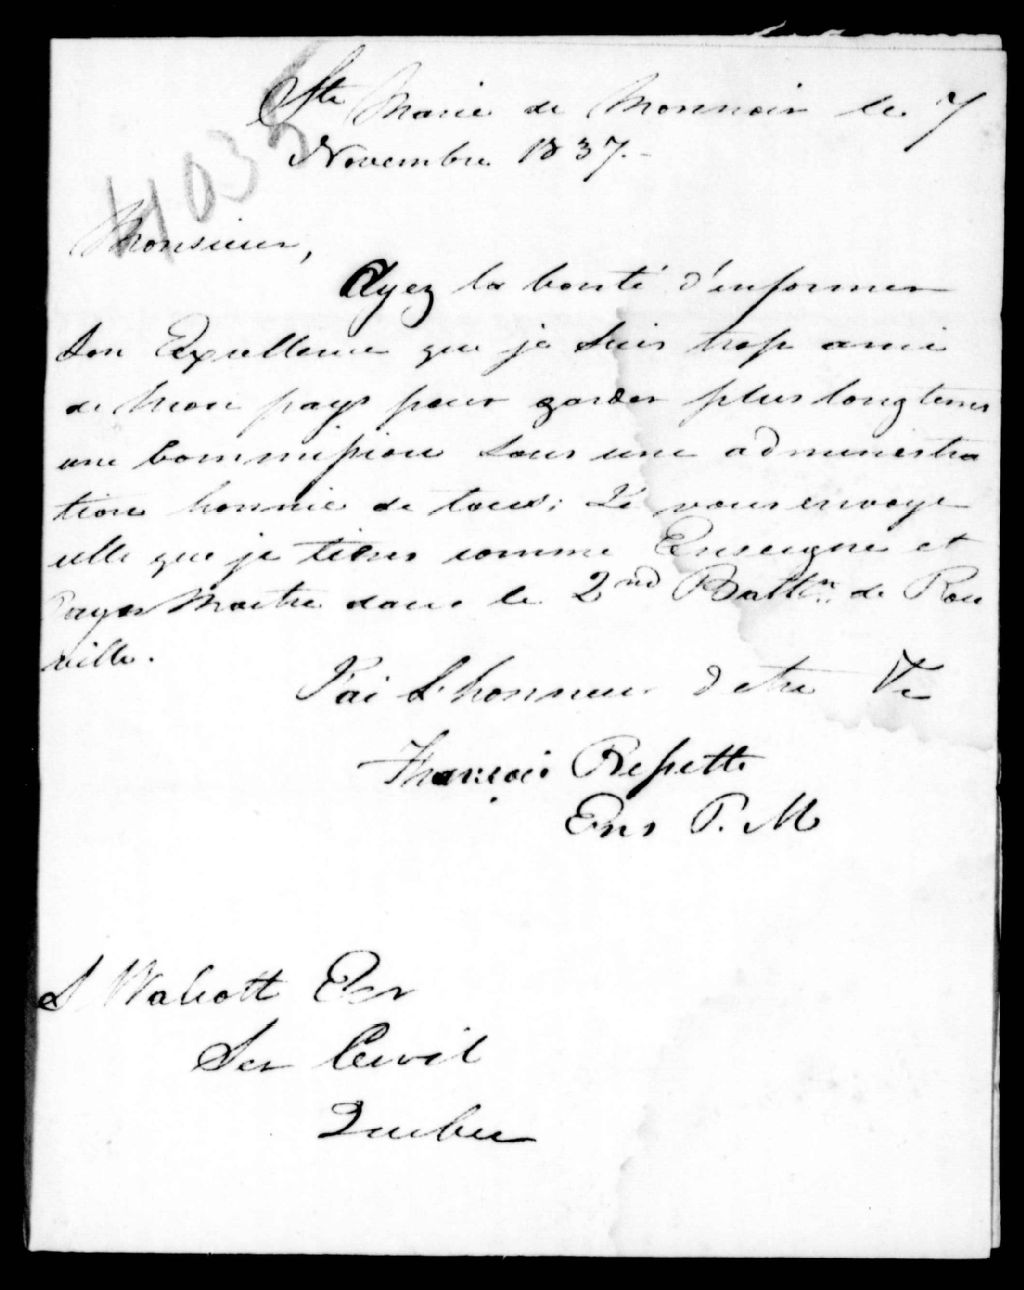 Ste Marie de Monnoir le 7
Novembre 1837.-
4035
Monsieur,
Ayez la bonté d'informer
Son Excellence que je suis trop ami
de mon pays pour garder plus longtems
une commission sous une administra
tion honnie de tous; Je vous envoye
celle que je tiens comme Enseigne et
Paye Maitre dans le 2nd Battn. de Rou
ville.
J'ai L'honneur d'etre Ve
François
Ens P. M
S Walcott Ecr
Ser Civil
Quebec